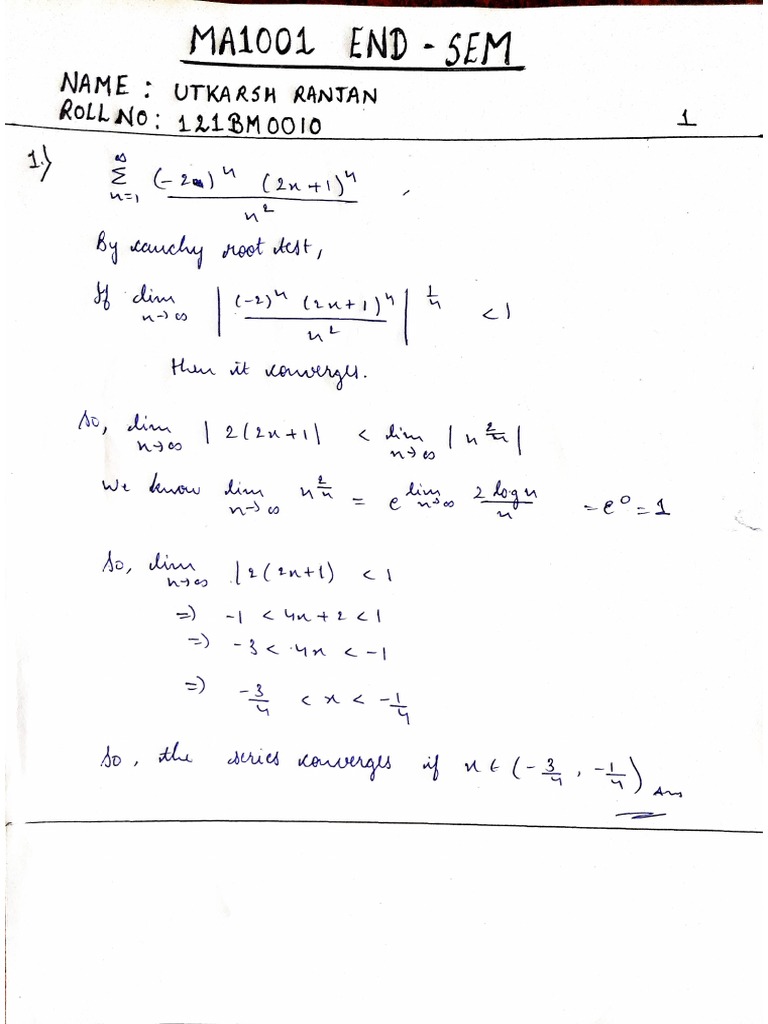 MA1001 END - SEM
NAME : UTKARSH RANJAN
ROLL NO: 121BM0010
1
1.) ∞ Σ n=1 (-2)^n (2x+1)^n / n^2 ,
By cauchy root test,
If lim n→∞ | (-2)^n (2x+1)^n / n^2 |^(1/n) < 1
then it converges.
So, lim n→∞ | 2(2x+1| < lim n→∞ | n^(2/n) |
We know lim n→∞ n^(2/n) = e^(lim n→∞ 2 log n / n) = e^0 = 1
So, lim n→∞ |2(2x+1) < 1
=) -1 < 4x + 2 < 1
=) -3 < 4x < -1
=) -3/4 < x < -1/4
So, the series converges if x ∈ (-3/4, -1/4) Ans